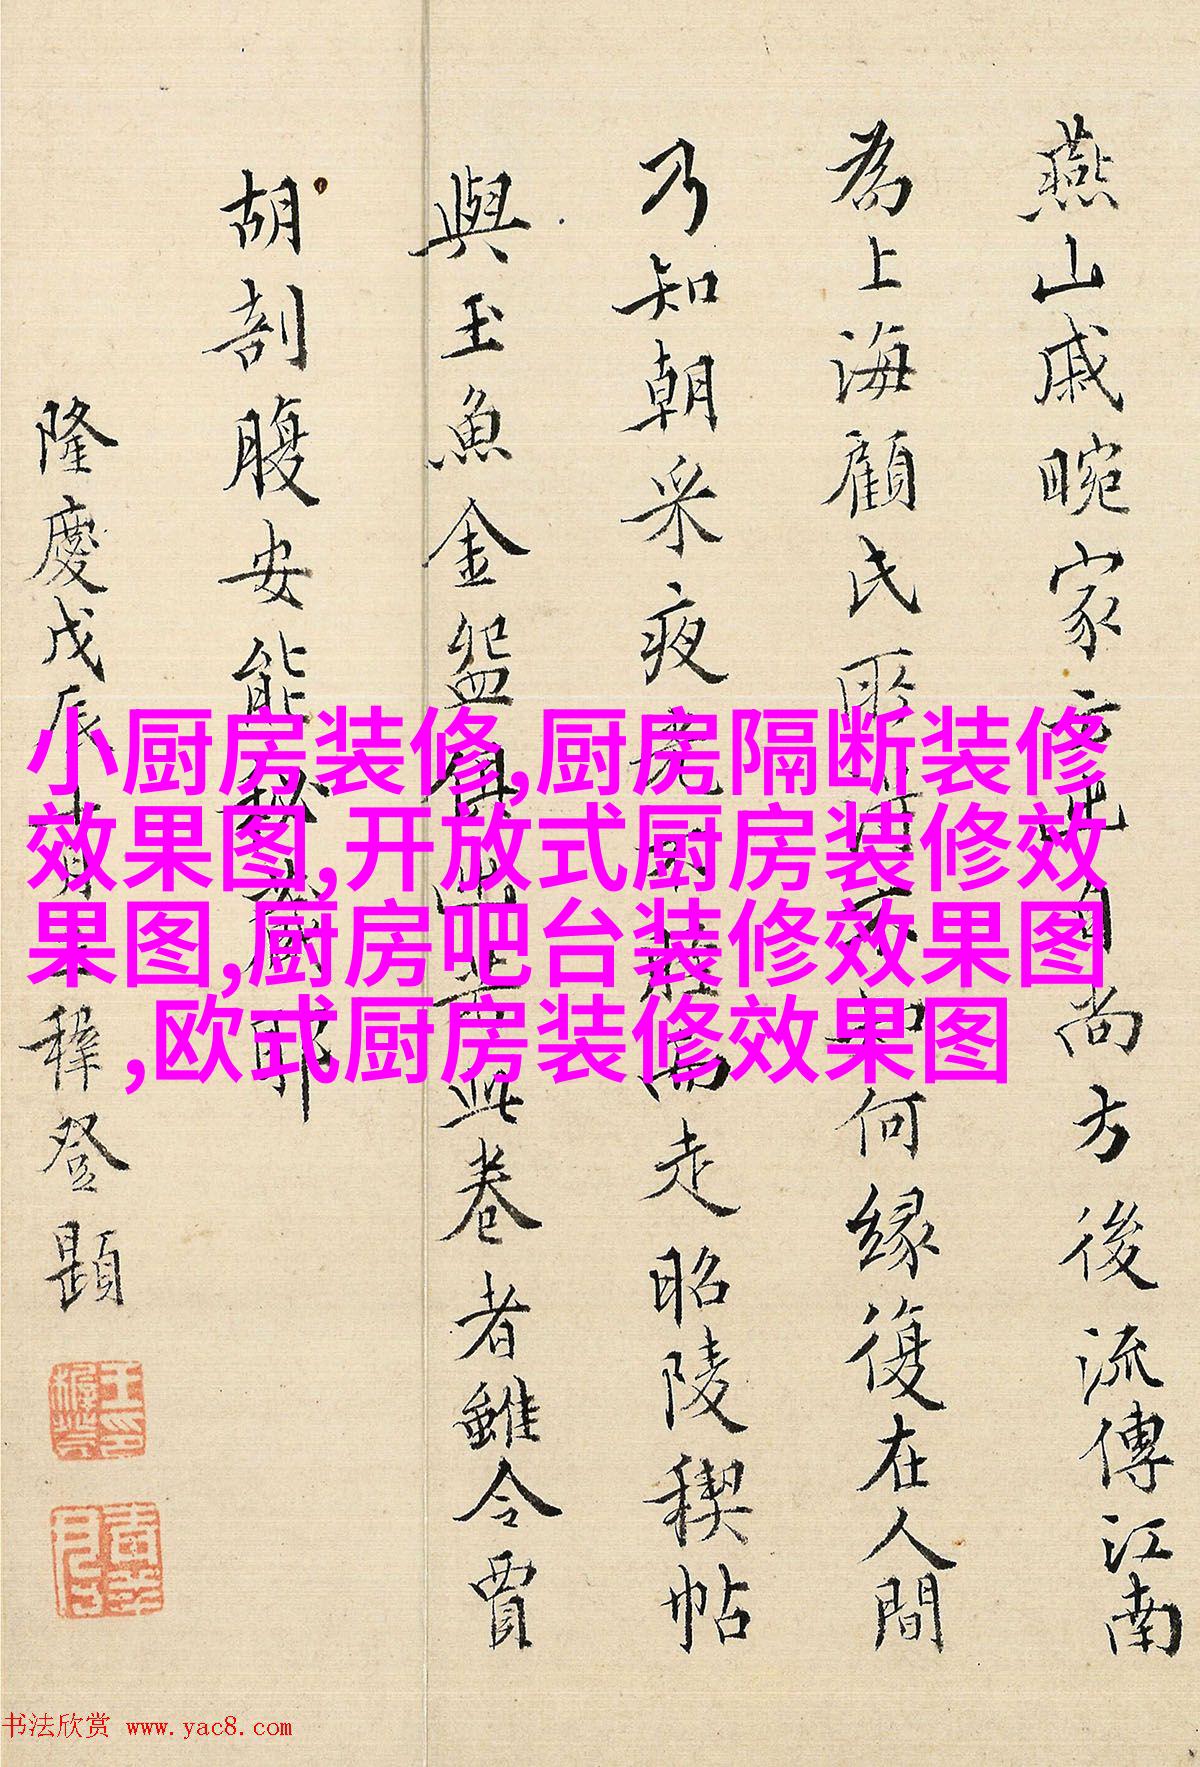 燕山戚畹家方兄自尚方後流傳江南
為上海顧氏所
何緣復在人間
乃知朝采夜
走昭陵稧帖
與玉魚金盌俱出
此卷者雖令賈
胡剖腹安能秘藏耶
隆慶戊辰
穉登題
小厨房装修,厨房隔断装修
效果图,开放式厨房装修效
果图,厨房吧台装修效果图
,欧式厨房装修效果图
书法欣赏 www.yac8.com